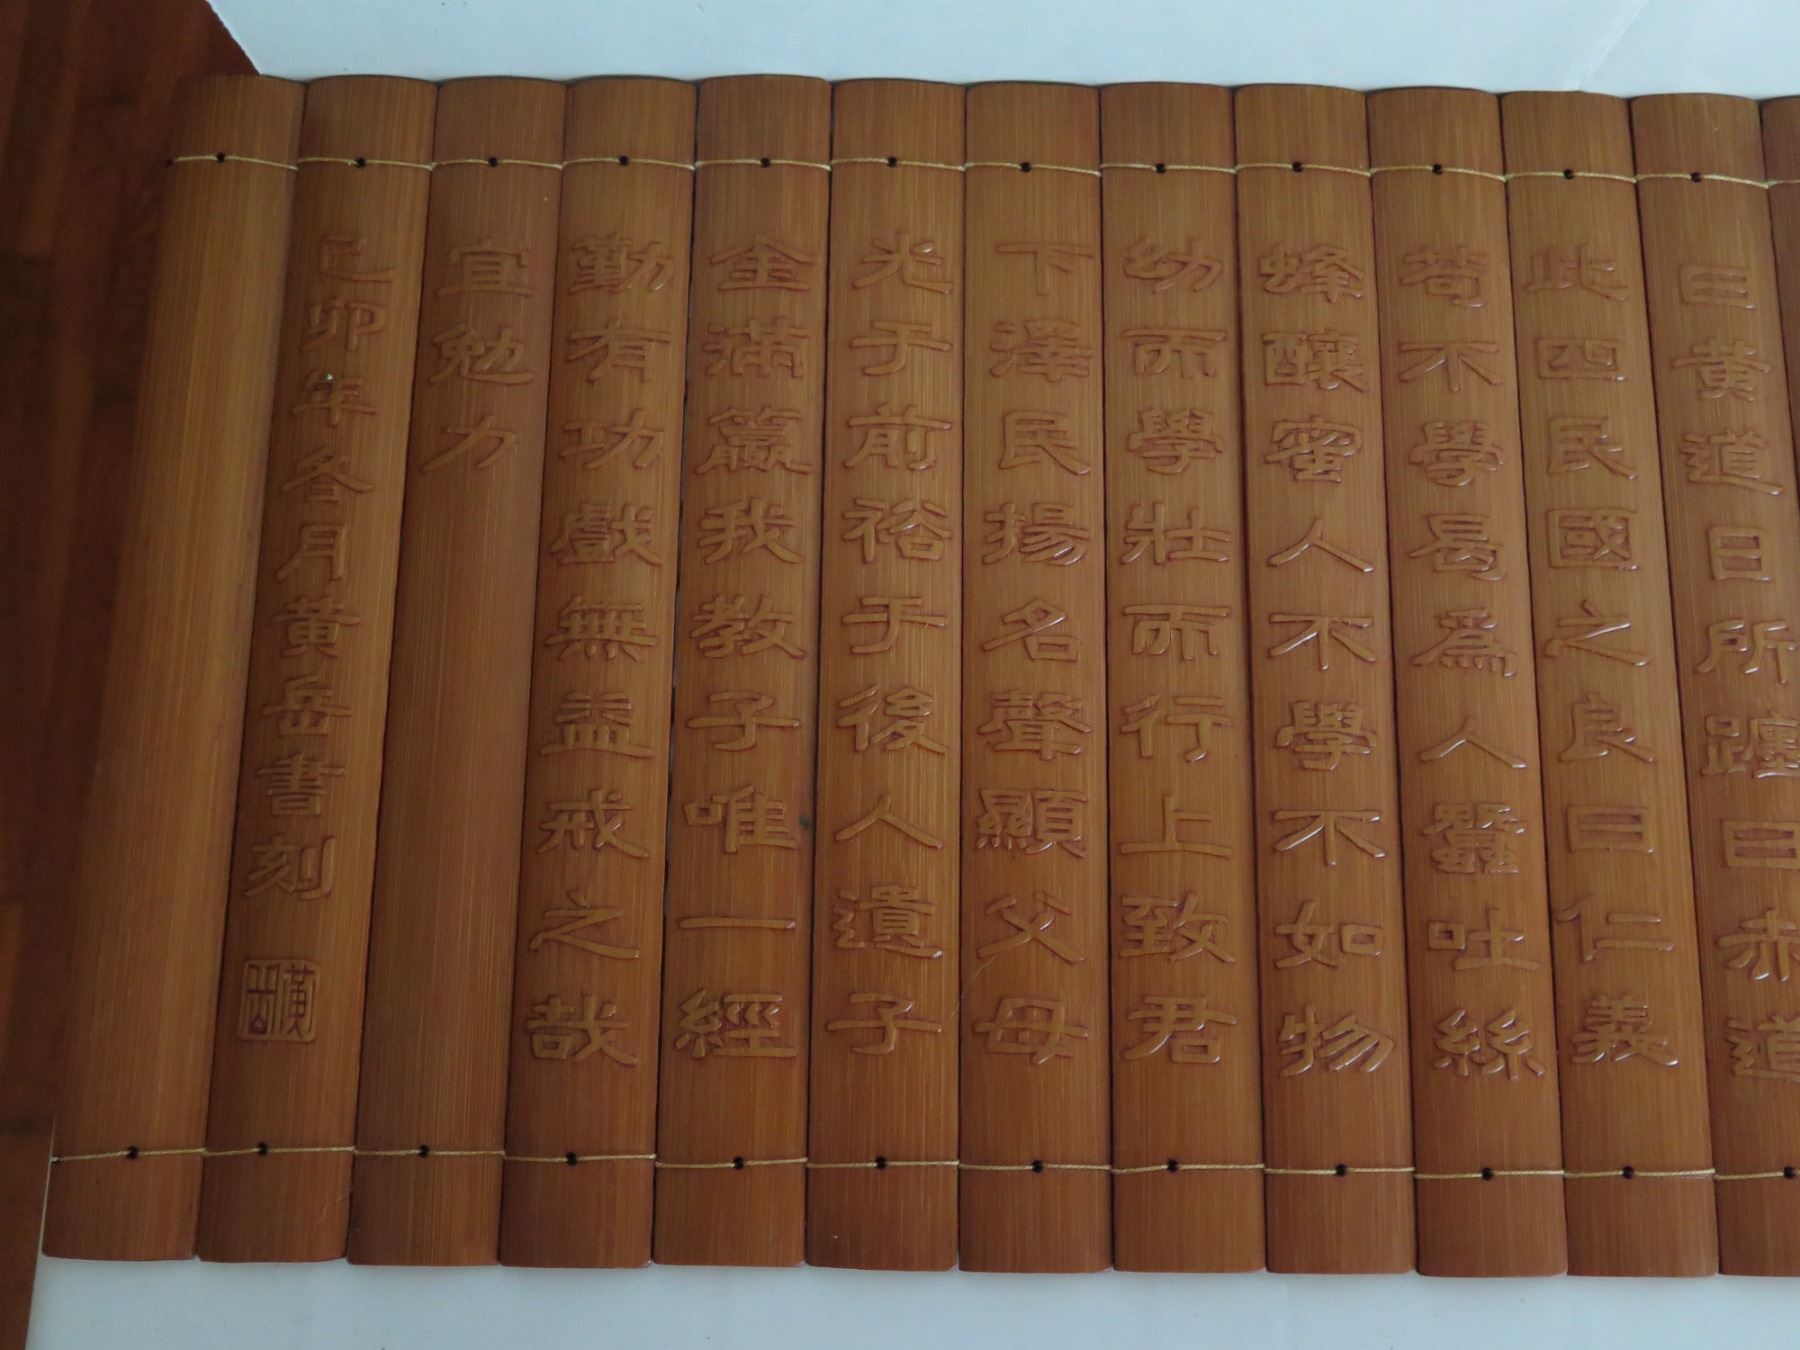 曰黄道日所躔曰赤道
此四民國之良曰仁義
苟不學曷爲人蠶吐絲
蜂釀蜜人不學不如物
幼而學壯而行上致君
下澤民揚名聲顯父母
光于前裕于後人遺子
金滿籯我教子唯一經
勤有功戲無益戒之哉
宜勉力
己卯年冬月黄岳書刻
黄岳